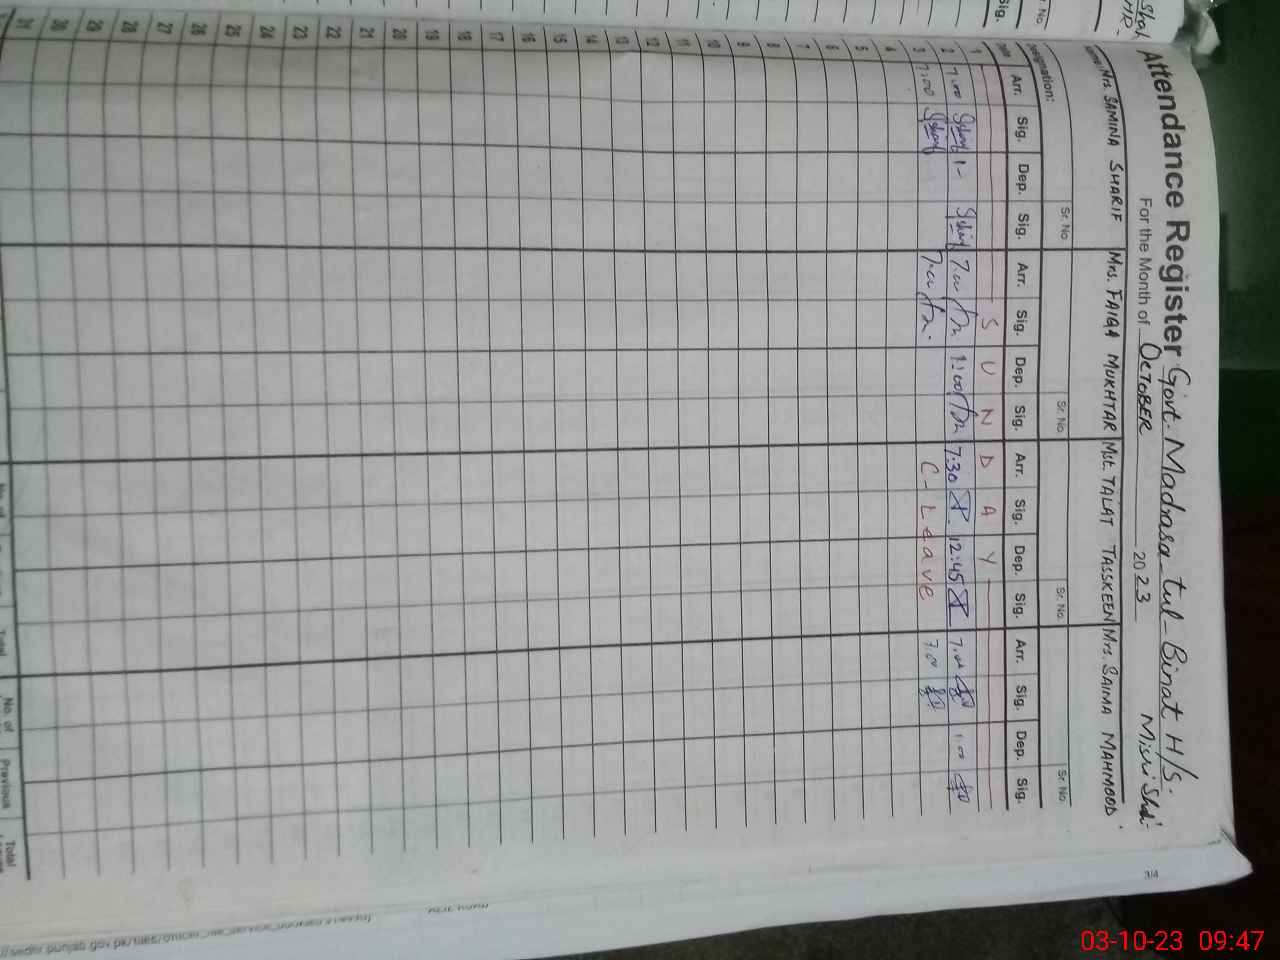 Attendance Register Govt. Madrasa tul-Binat H/S.
For the Month of OCTOBER 2023
Name: Mrs. SAMINA SHARIF Mrs. FAIQA MUKHTAR Mst. TALAT TASSKEEN Mrs. SAIMA MAHMOOD
Sr. No. Sr. No. Sr. No. Sr. No.
Designation:
Date Arr. Sig. Dep. Sig. Arr. Sig. Dep. Sig. Arr. Sig. Dep. Sig. Arr. Sig. Dep. Sig.
1 S U N D A Y
2 7.00 1- 7.00 1:00 7:30 12:45 7.00 1.00
3 7.00 7.00 C-Leave 7.00
4
5
6
7
8
9
10
11
12
13
14
15
16
17
18
19
20
21
22
23
24
25
26
27
28
29
30
31
No. of Previous Total
3/4
03-10-23 09:47